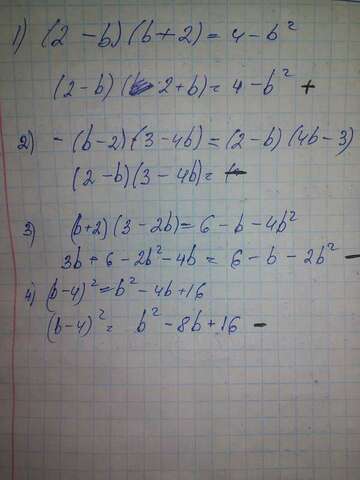 1) (2 - b)(b + 2) = 4 - b²
(2 - b)(2 + b) = 4 - b² +
2) - (b - 2)(3 - 4b) = (2 - b)(4b - 3)
(2 - b)(3 - 4b) = -
3) (b + 2)(3 - 2b) = 6 - b - 4b²
3b + 6 - 2b² - 4b = 6 - b - 2b² -
4) (b - 4)² = b² - 4b + 16
(b - 4)² = b² - 8b + 16 -